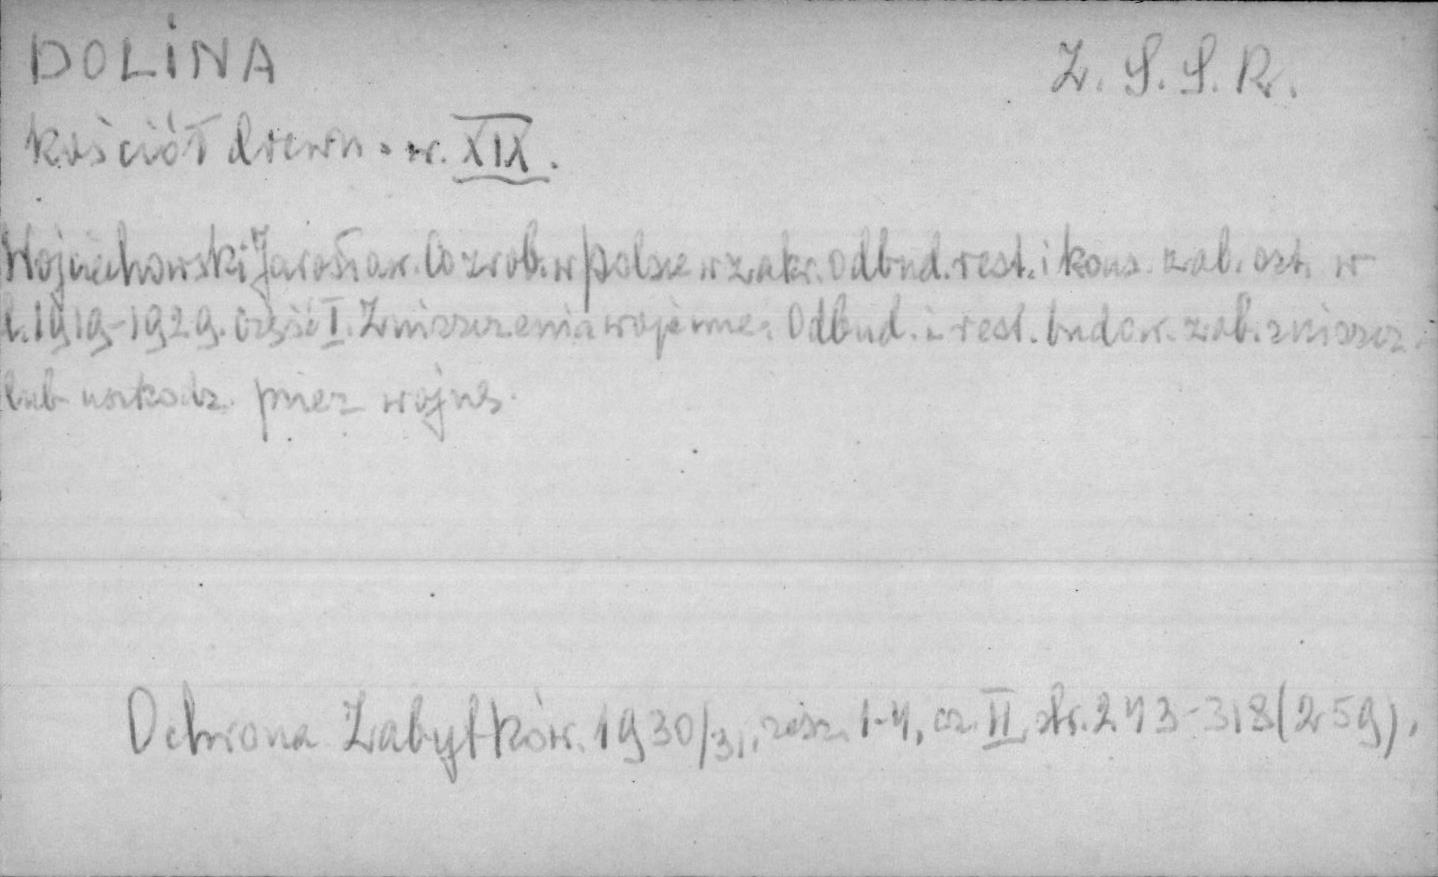 DOLINA
Z. S. S. R.
kościół drewn. w. XIX.
Wojciechowski Jarosław. Co zrob. w Polsce w zakr. odbud. rest. i kons. zab. szt. w
l. 1919-1929. Część I. Zniszczenia wojenne. Odbud. i rest. budow. zab. zniszcz.
lub uszkodz. przez wojnę.
Ochrona Zabytków. 1930/31, zesz. 1-4, cz. II, str. 243-318 (259).